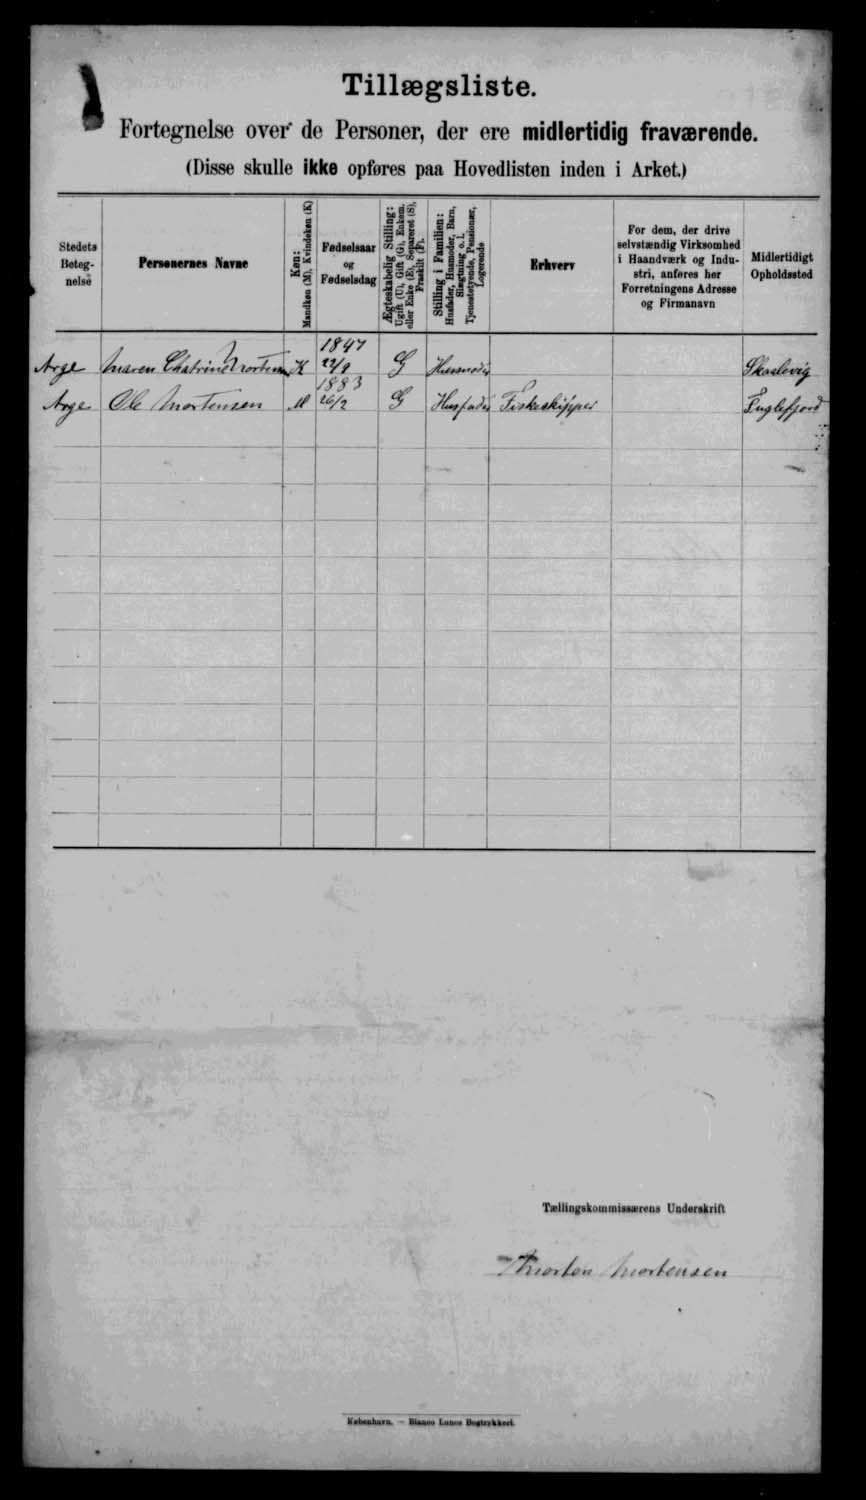 Tillægsliste.
Fortegnelse over de Personer, der ere midlertidig fraværende.
(Disse skulle ikke opføres paa Hovedlisten inden i Arket.)
Stedets Beteg- nelse
Personernes Navne
Køn: Mandkøn (M), Kvindekøn (K)
Fødselsaar og Fødselsdag
Ægteskabelig Stilling: Ugift (U), Gift (G), Enkem. eller Enke (E), Separeret (S), Fraskilt (F).
Stilling i Familien: Husfader, Husmoder, Barn, Slægtning o. l. Tjenestetyende, Pensionær, Logerende
Erhverv
For dem, der drive selvstændig Virksomhed i Haandværk og Indu- stri, anføres her Forretningens Adresse og Firmanavn
Midlertidigt Opholdssted
Arge Maren Chatrine Mortensen K 1847 22/9 G Husmoder Skaalevig
Arge Ole Mortensen M 1883 26/2 G Husfader Fiskeskipper Fuglefjord
Tællingskommissærens Underskrift
Morten Mortensen
København. — Bianco Lunos Bogtrykkeri.